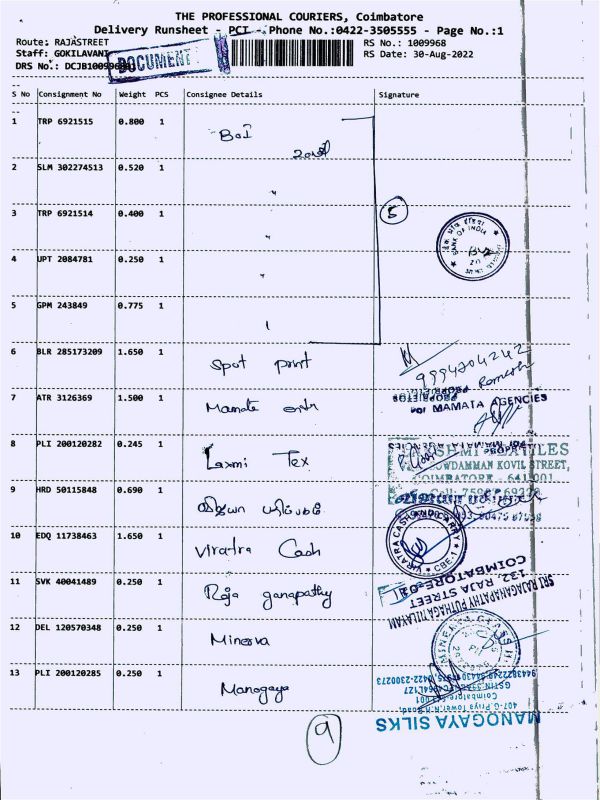 THE PROFESSIONAL COURIERS, Coimbatore
Delivery Runsheet - PCT - Phone No.:0422-3505555 - Page No.:1
Route: RAJASTREET RS No.: 1009968
Staff: GOKILAVANI RS Date: 30-Aug-2022
DRS No.: DCJB1009968
DOCUMENT
S No Consignment No Weight PCS Consignee Details Signature
1 TRP 6921515 0.800 1 BOI
2 SLM 302274513 0.520 1 "
3 TRP 6921514 0.400 1 "
5
BANK OF INDIA
4 UPT 2084781 0.250 1 "
5 GPM 243849 0.775 1
6 BLR 285173209 1.650 1 Spot print
9994204242
Ramesh
7 ATR 3126369 1.500 1
For MAMATA AGENCIES
PROPRIETOR
8 PLI 200120282 0.245 1 Laxmi Tex
KOVIL STREET,
COIMBATORE - 641 001
9 HRD 50115848 0.690 1
10 EDQ 11738463 1.650 1 Viratra Cash
VIRATRA CASH AND CARRY
CBE-1
11 SVK 40041489 0.250 1 Raja ganapathy
SRI RAJAGANAPATHY PUTHAGA NILAYAM
132, RAJA STREET
COIMBATORE-01
12 DEL 120570348 0.250 1 Minerva
13 PLI 200120285 0.250 1 Manogaya
MANOGAYA SILKS
407-G, Priya Tower, N.H.Road,
9